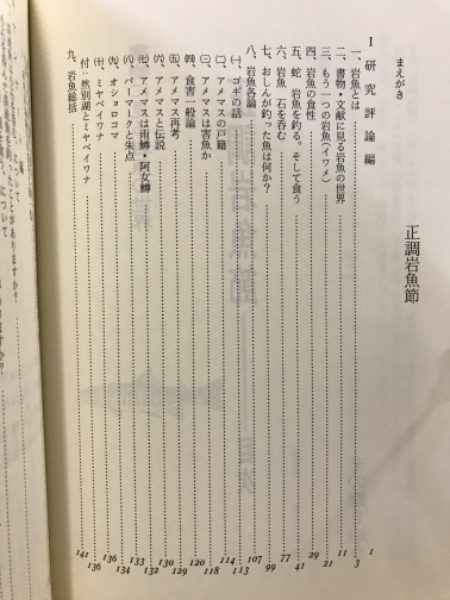 正調岩魚節
まえがき……1
I 研究評論編
一、岩魚とは……3
二、書物・文献に見る岩魚の世界……11
三、もう一つの岩魚(イワメ)……21
四、岩魚の食性……29
五、蛇 岩魚を釣る。そして食う……41
六、岩魚 石を呑む……77
七、おしんが釣った魚は何か?……99
八、岩魚各論……107
㈠、ゴギの話……113
㈡、アメマスの戸籍……114
㈢、アメマスは害魚か……118
㈣、食害一般論……120
㈤、アメマス再考……129
㈥、アメマスと伝説……130
㈦、アメマスは雨鱒・阿女鱒……132
㈧、パーマークと朱点……133
㈨、オショロコマ……134
㈩、ミヤベイワナ……136
付:然別湖とミヤベイワナ……136
九、岩魚総括……141
ことがありますか?